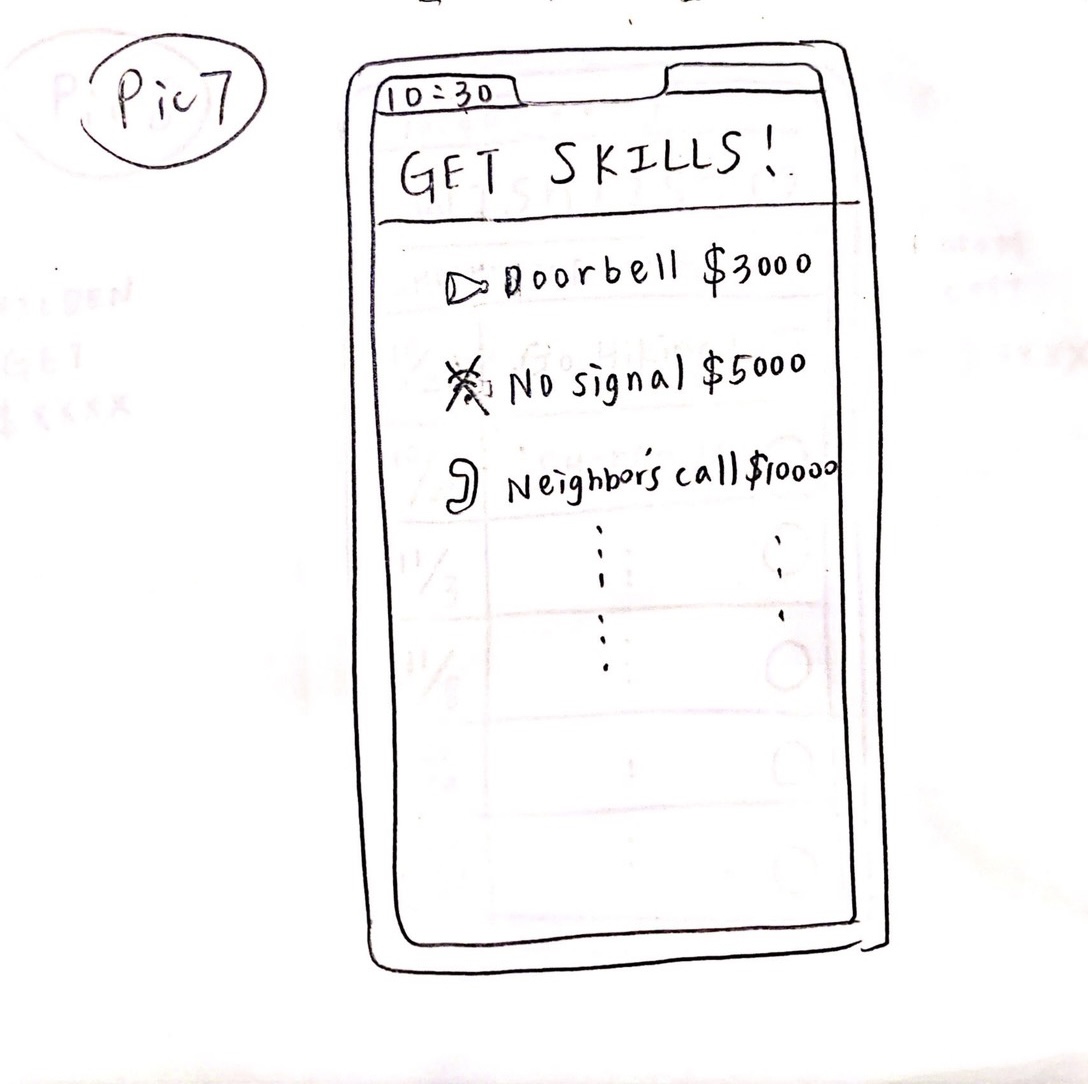 Pic 7
10:30
GET SKILLS!
Doorbell $3000
No signal $5000
Neighbor's call $10000